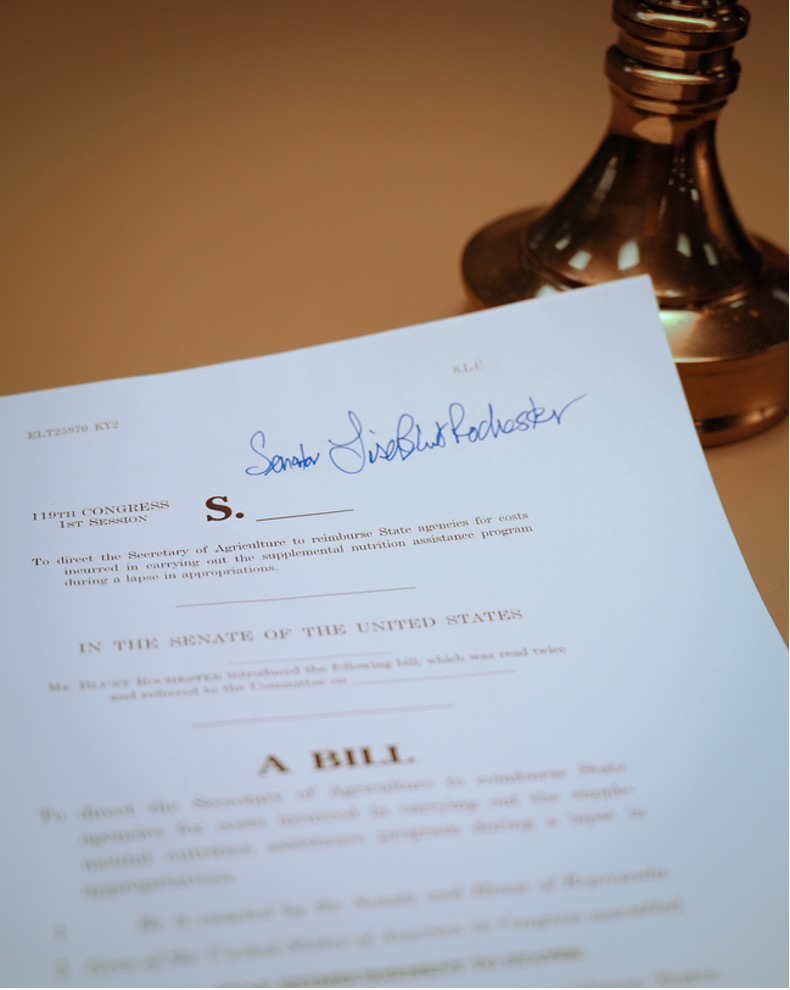 S.L.C.
ELT25970 KY2
Senator Lisa Blunt Rochester
119TH CONGRESS
1ST SESSION
S.
To direct the Secretary of Agriculture to reimburse State agencies for costs
incurred in carrying out the supplemental nutrition assistance program
during a lapse in appropriations.
IN THE SENATE OF THE UNITED STATES
Ms. BLUNT ROCHESTER introduced the following bill; which was read twice
and referred to the Committee on
A BILL
To direct the Secretary of Agriculture to reimburse State
agencies for costs incurred in carrying out the supple-
mental nutrition assistance program during a lapse in
appropriations.
1 Be it enacted by the Senate and House of Representa-
2 tives of the United States of America in Congress assembled,